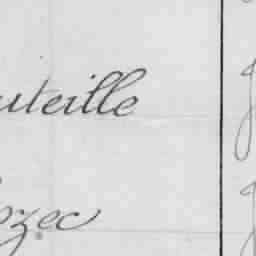 uteille
ozec